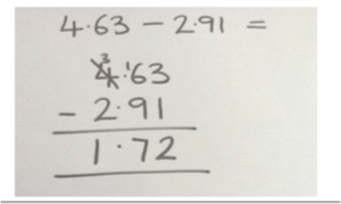 4·63 − 2·91 =
3
4·¹63
− 2·91
1·72